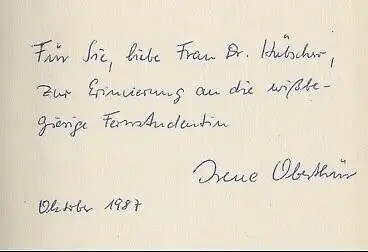 Für Sie, liebe Frau Dr. Hübscher,
zur Erinnerung an die wißbe-
gierige Fernstudentin
Irene Oberthür
Oktober 1987